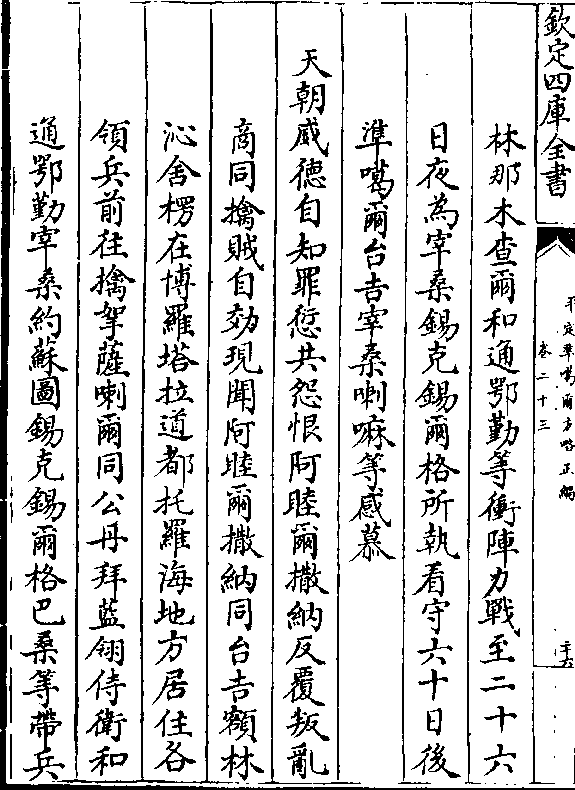 欽定四庫全書
平定準噶爾方略正編
卷二十三
二十六
林那木查爾和通鄂勤等衝陣力戰至二十六
日夜為宰桑錫克錫爾格所執看守六十日後
準噶爾台吉宰桑喇嘛等感慕
天朝威德自知罪愆共怨恨阿睦爾撒納反覆叛亂
商同擒賊自効現聞阿睦爾撒納同台吉額林
沁舍楞在博羅塔拉道都托羅海地方居住各
領兵前往擒拏薩喇爾同公丹拜藍翎侍衛和
通鄂勤宰桑約蘇圖錫克錫爾格巴桑等帶兵